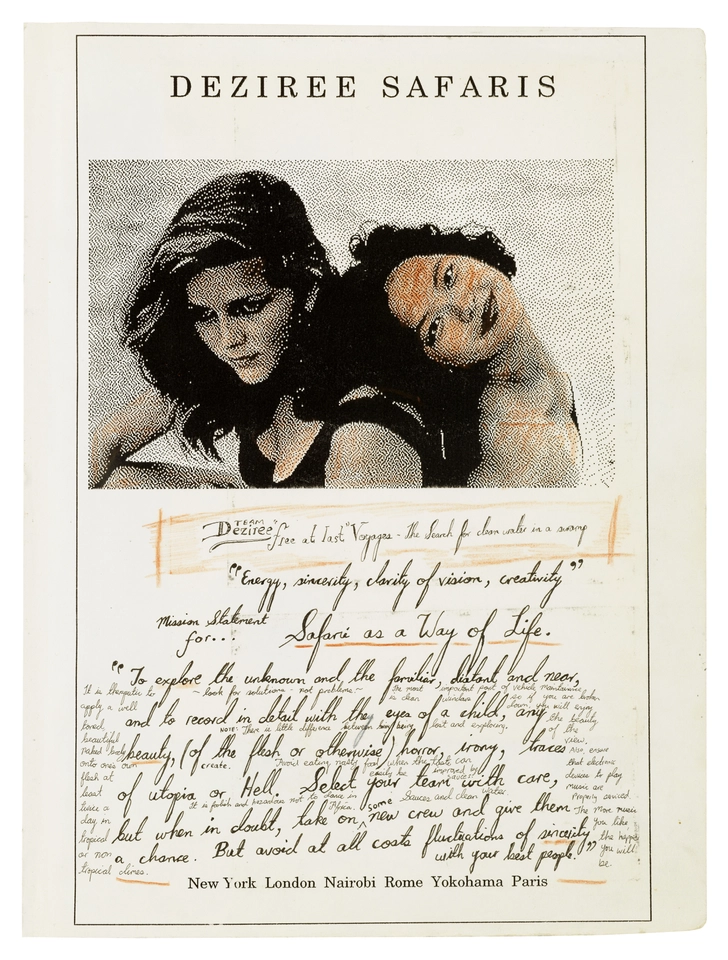 DEZIREE SAFARIS
TEAM
Deziree "free at last" Voyages - The Search for clean water in a swamp
"Energy, sincerity, clarity of vision, creativity"
Mission Statement
for...
Safari as a Way of Life.
"To explore the unknown and the familiar, distant and near,
~ look for solutions - not problems ~
important part of vehicle maintenance
is clean windows
so if you are broken
down, you will enjoy
the beauty
of the
view.
and to record in detail with the eyes of a child, any
NOTE: There is little difference between being lost and exploring.
beauty, (of the flesh or otherwise) horror, irony, traces
create.
of utopia or Hell. Select your team with care,
It is foolish and hazardous not to dance in
Africa.
sauces and clean water.
but when in doubt, take on some new crew and give them
a chance. But avoid at all costs fluctuations of sincerity"
with your best people.
It is therapeutic to
apply a well
loved,
beautiful
naked body
onto one's own
flesh at
least
twice a
day in
tropical
or non
tropical climes.
Also, ensure
that electronic
devices to play
music are
properly serviced.
The more music
you like
the happier
you will
be.
New York London Nairobi Rome Yokohama Paris